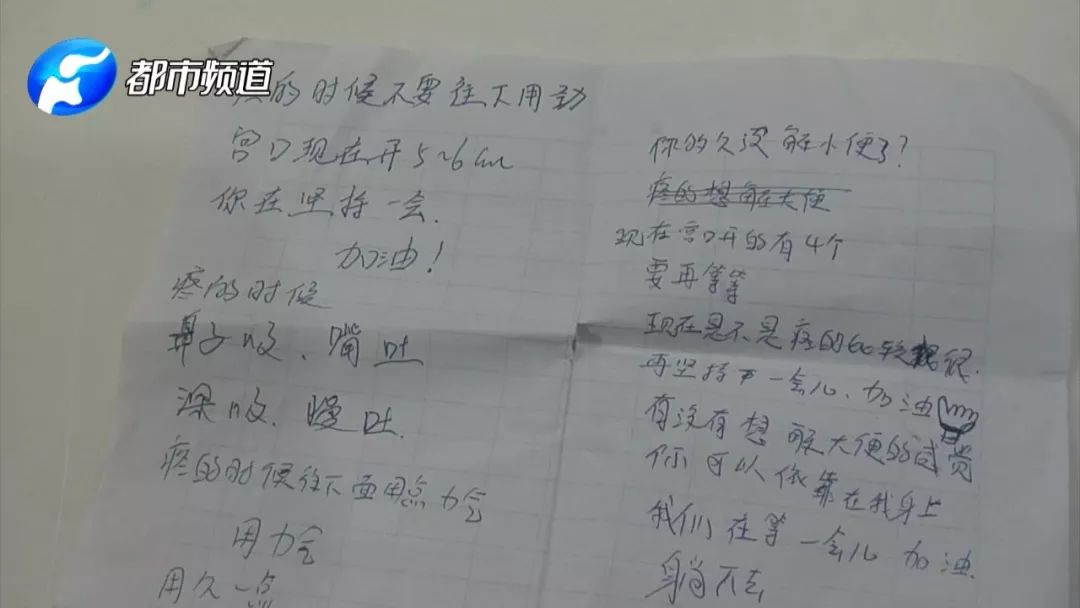 都市频道
的时候不要往下用劲
宫口现在开5~6cm
你在坚持一会.
加油!
疼的时候
鼻子吸、嘴吐
深吸.慢吐.
疼的时候往下面用点力
用力
用久一点
你的久没解小便了?
疼的想解大便
现在宫口开的有4个
要再等等
现在是不是疼的比较很.
再坚持下一会儿、加油
有没有想解大便的
你可以依靠在我身上
我们在等一会儿 加油.
躺下去